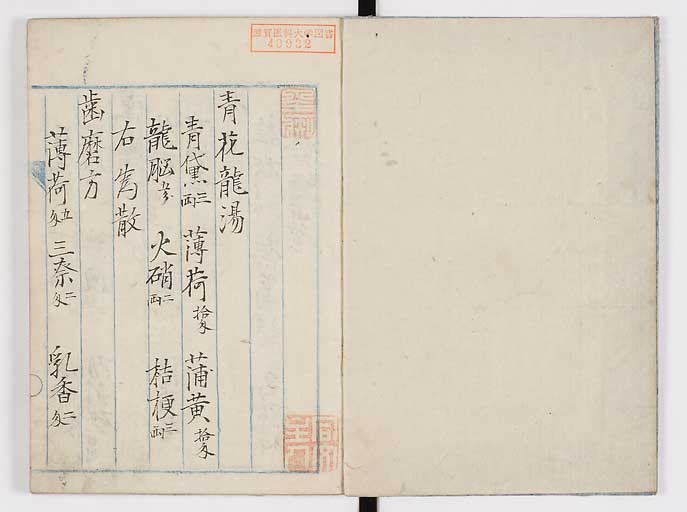 滋賀医科大学図書
40932
青花龍湯
青黛三両 薄荷拾匁 蒲黄拾匁
龍脳 火硝二両 桔梗三両
右為散
歯磨方
薄荷五匁 三奈二匁 乳香二匁